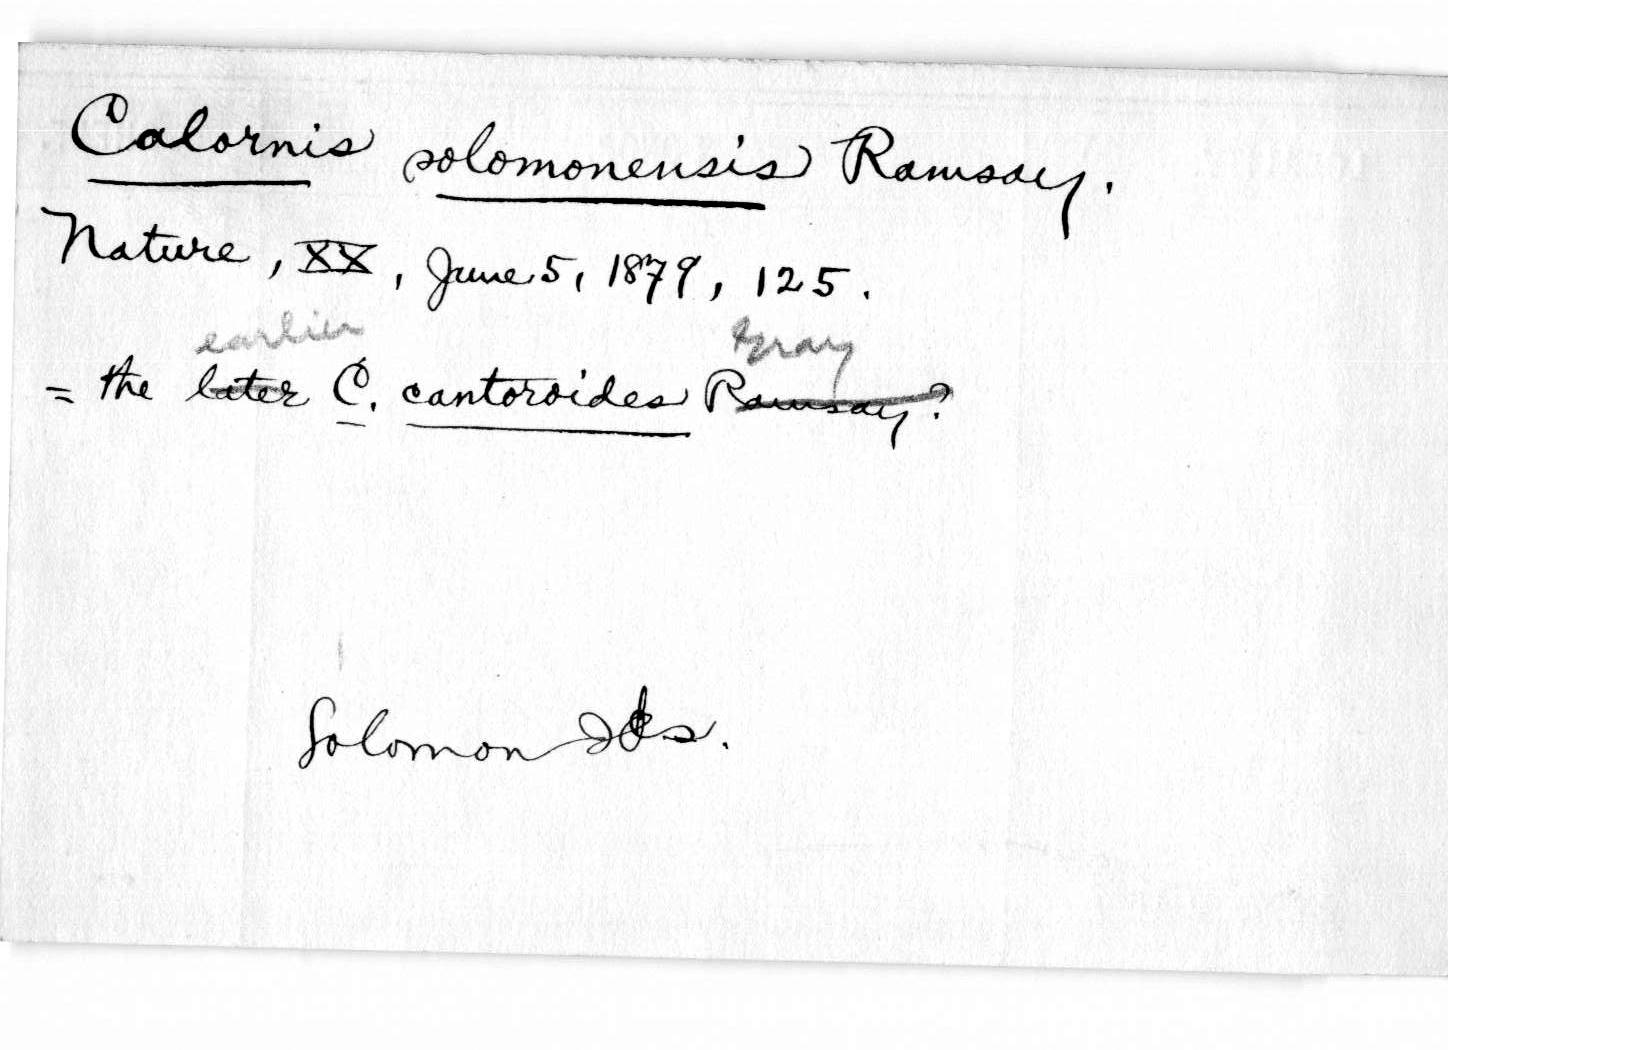 Calornis solomonensis Ramsay.
Nature, XX, June 5, 1879, 125.
earlier Gray
= the later C. cantoroides Ramsay?
Solomon Ids.